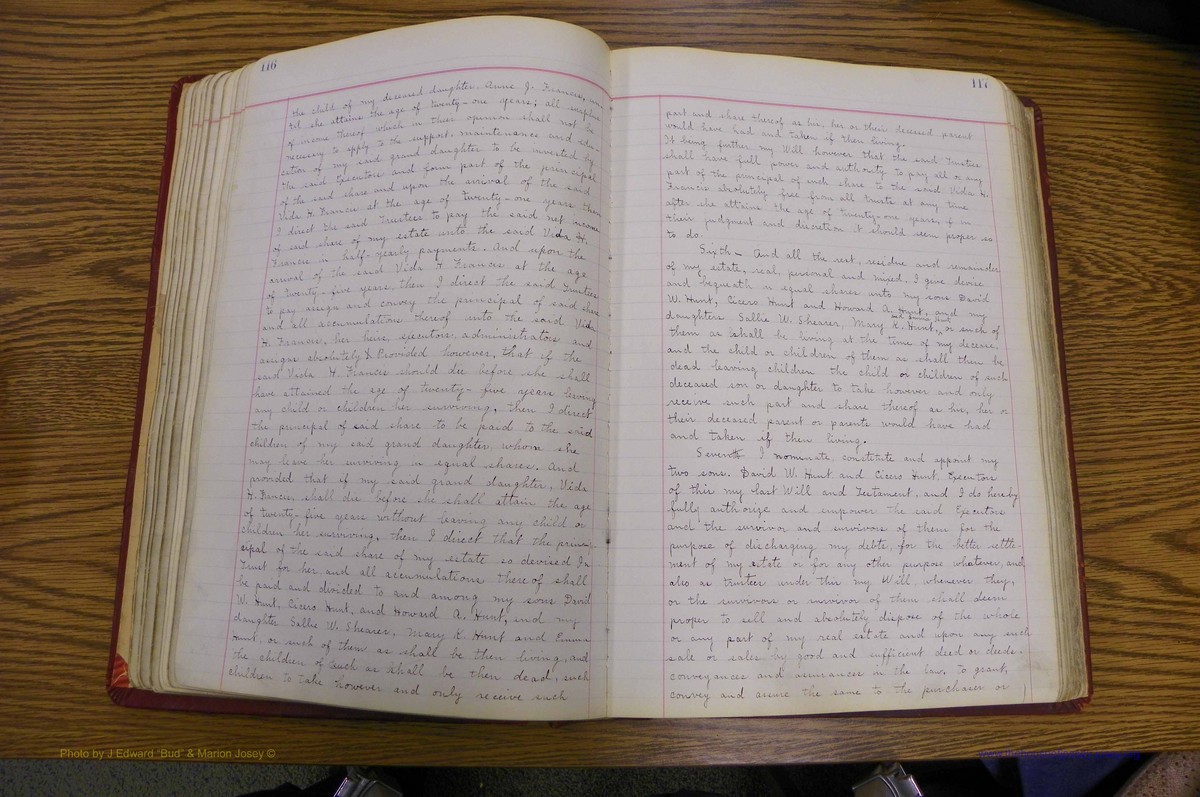 116
the child of my deceased daughter, Anna J. Francis, un-
til she attains the age of twenty-one years; all surplus
of income thereof which in their opinion shall not be
necessary to apply to the support, maintenance and edu-
cation of my said grand daughter to be invested by
the said Executors and form part of the principal
of the said share and upon the arrival of the said
Vida H. Francis at the age of twenty-one years then
I direct the said Trustees to pay the said net income
of said share of my estate unto the said Vida H.
Francis in half-yearly payments. And upon the
arrival of the said Vida H Francis at the age
of twenty-five years, then I direct the said Trustees
to pay assign and convey the principal of said share
and all accumulations thereof unto the said Vida
H. Francis, her heirs, executors, administrators and
assigns absolutely & Provided however, that if the
said Vida H. Francis should die before she shall
have attained the age of twenty-five years leaving
any child or children her surviving, then I direct
the principal of said share to be paid to the said
children of my said grand daughter, whom she
may leave her surviving in equal shares. And
provided that if my said grand daughter, Vida
H. Francis shall die before she shall attain the age
of twenty-five years without leaving any child or
children her surviving, then I direct that the prin-
cipal of the said share of my estate so devised In
Trust for her and all accumulations thereof shall
be paid and divided to and among my sons David
W. Hunt, Cicero Hunt, and Howard A. Hunt, and my
daughter Sallie W. Shearer, Mary K. Hunt and Emma
Hunt, or such of them as shall be then living, and
the children of such as shall be then dead, such
children to take however and only receive such
117
part and share thereof as his, her or their deceased parent
would have had and taken if then living.
It being further my Will however that the said Trustees
shall have full power and authority to pay all or any
part of the principal of such share to the said Vida H.
Francis absolutely free from all trusts at any time
after she attains the age of twenty-one years, if in
their judgment and discretion it should seem proper so
to do.
Sixth - And all the rest, residue and remainder
of my estate, real, personal and mixed, I give devise
and bequeath in equal shares unto my sons David
W. Hunt, Cicero Hunt and Howard A. Hunt, and my
daughters Sallie W. Shearer, Mary K. Hunt, and Emma Hunt, or such of
them as shall be living at the time of my decease,
and the child or children of them as shall then be
dead leaving children the child or children of such
deceased son or daughter to take however and only
receive such part and share thereof as his, her or
their deceased parent or parents would have had
and taken if then living.
Seventh I nominate, constitute and appoint my
two sons. David W. Hunt and Cicero Hunt Executors
of this my last Will and Testament, and I do hereby
fully authorize and empower the said Executors
and the survivor and survivors of them for the
purpose of discharging my debts, for the better settle-
ment of my estate or for any other purpose whatever, and
also as trustees under this my Will, whenever they,
or the survivors or survivor of them shall deem
proper to sell and absolutely dispose of the whole
or any part of my real estate and upon any such
sale or sales by good and sufficient deed or deeds-
conveyances and assurances in the law, to grant,
convey and assure the same to the purchaser or
Photo by J Edward "Bud" & Marion Josey ©